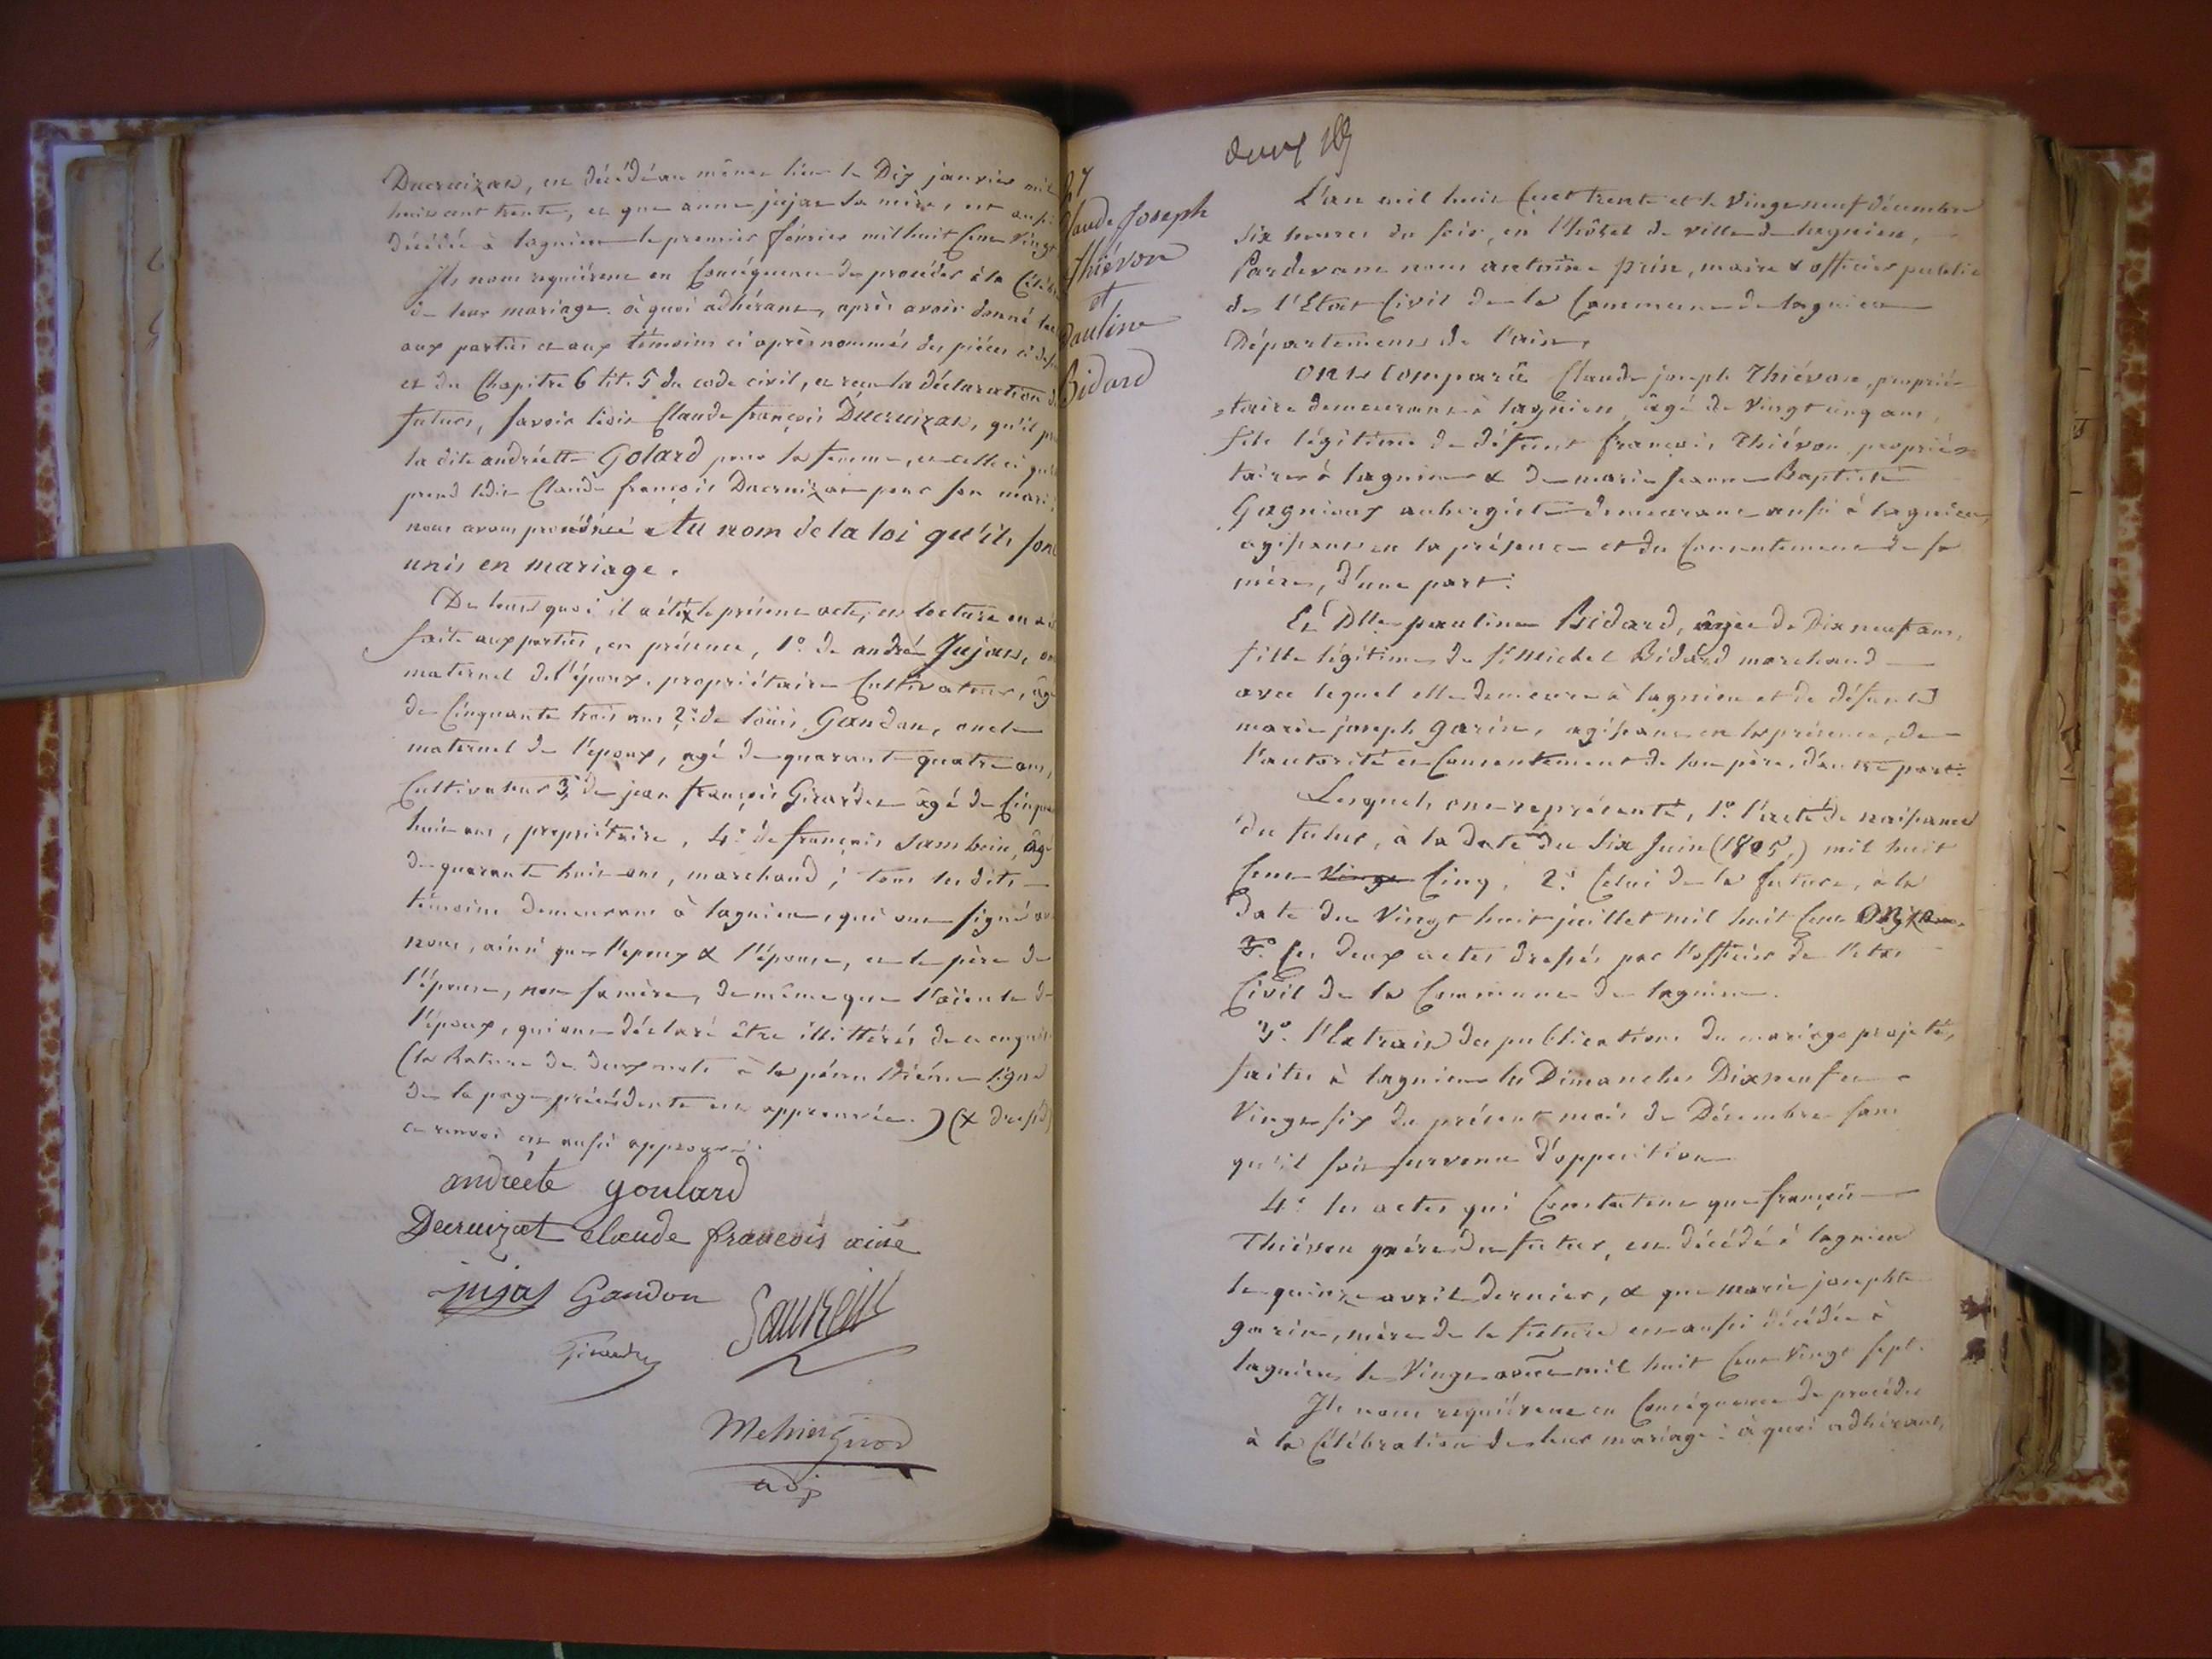 Ducruizat, est décédé au même lieu le Dix janvier mil
huit cent trente, et que anne jujat sa mère, est aussi
décédée à lagnieu le premier février mil huit Cent Vingt
Ils nous requièrent en Conséquence de procéder à la Célébr
de leur mariage. à quoi adhérant, après avoir donné lec
aux parties et aux témoins ci après nommés des pièces ci dess
et du Chapitre 6 tit. 5 du code civil, et reçu la déclaration d
futurs, savoir ledit Claude françois Ducruizat, qu'il pr
la dite andréette Golard pour sa femme, et celle ci qu'
prend ledit Claude françois Ducruizat pour son mari,
nous avons prononcé Au nom de la loi qu'ils sont
unis en mariage.
De tout quoi il a été x le présent acte, et lecture en a é
faite aux parties, en présence, 1.° de andré Jujat, on
maternel de l'époux, propriétaire Cultivateur, âg
de Cinquante trois ans 2.° de louis Gandon, oncle
maternel de l'epoux, agé de quarante quatre ans,
Cultivateur 3.° de jean françois Girardet âgé de Cinqua
huit ans, propriétaire, 4.° de françois Sambein, âgé
de quarante huit ans, marchand; tous les dits
témoins demeurant à lagnieu, qui ont signé av
nous, ainsi que l'epoux & l'épouse, et le père de
l'épouse, non sa mère, de même que l'aïeule de
l'époux, qui ont déclaré être illittérés de ce enquis
(la Rature de deux mots à la pénultième ligne
de la page précédente est approuvée.) (x dressé)
ce renvoi est aussi approuvé.
andréete goulard
Decruizat claude francois ainé
jujat Gandon
Girardet
Mehier Girod
adj
27
Claude Joseph
Thiévon
et
Pauline
Bidard
deux
L'an mil huit Cent trente et le Vingt neuf décembre
six heures du soir, en l'hôtel de ville de lagnieu,
Pardevant nous antoine prin, maire & officier public
de l'Etat Civil de la Commune de lagnieu
Département de l'ain,
ont Comparû Claude joseph Thiévon, proprié-
taire demeurant à lagnieu, âgé de Vingt cinq ans,
fils légitime de défunt françois Thiévon propriét
taire à lagnieu & de marie jeanne Baptiste
Gagnieux aubergiste demeurant aussi à lagnieu,
agissant en la présence et du Consentement de sa
mère, d'une part.
Et D.lle pauline Bidard, âgée de Dix neuf ans,
fille légitime de S.r Michel Bidard marchand
avec lequel elle demeure à lagnieu et de défunte
marie joseph garin, agissant en la présence, de
l'autorité et Consentement de son père, d'autre part.
Lesquels ont représenté, 1.° l'acte de naissance
du futur, à la date du Six Juin (1805,) mil huit
Cent Vingt Cinq, 2.° Celui de la future, à la
date du Vingt huit juillet mil huit Cent Onze
3.° Ces deux actes dressés par l'officier de l'etat
Civil de la Commune de lagnieu.
3.° l'Extrait des publications du mariage projeté,
faites à lagnieu les Dimanches Dix neuf et
Vingt six du présent mois de Décembre sans
qu'il soit survenu d'opposition
4.° les actes qui Constatent que françois
Thiévon père du futur, est décédé à lagnieu
le quinze avril dernier, & que marie josephte
garin, mère de la future est aussi décédée à
lagnieu le Vingt août mil huit Cent Vingt sept.
Ils nous requièrent en Conséquence de procéder
à la Célébration de leur mariage: à quoi adhérant,